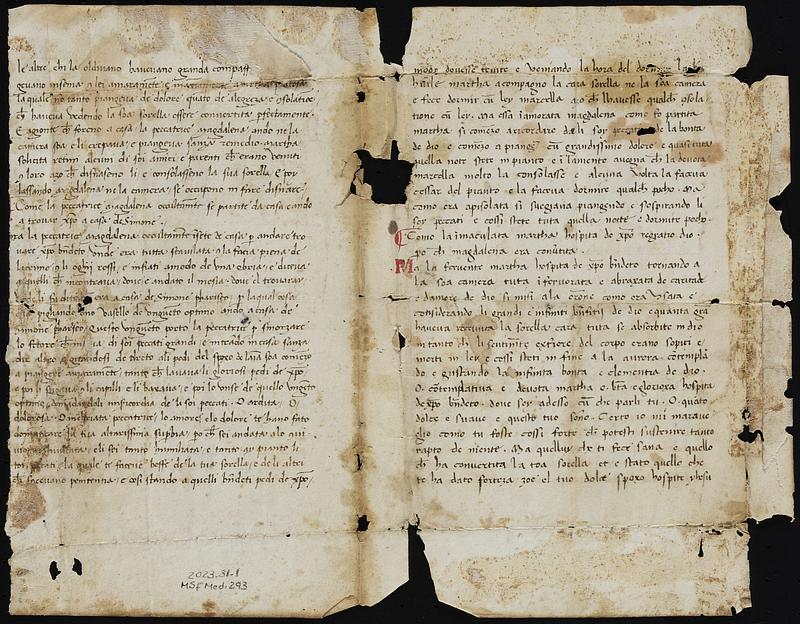 le altre chi la oldivano haveuano granda compass
la quale no tanto piangeua de dolore quato de alegreza e cosolatioe
ch haueua vedendo la soa sorella essere conuertita pfectamente
E agionte ch foreno a casa la peccatrice magdalena ando ne la
camera soa e li crepaua e piangeua sanza remedio martha
solicita retini alcuni di soi amici e parenti ch erano venuti
lassando magdalena ne la camera se occupono in fare disnare
Como la peccatrice magdalena occultamte se partite da casa e ando
a trouar xpo a casa de Simone
la peccatrice magdalena occultamte usete de casa p andare tro
uare xpo bndeto unde era tutta stimulata la facia piena de
lacrime li oghi rossi e infiati amodo de una ebria e diceua
a quelli ch incontraua doue e andato il mesia doue el trouarai
era a casa de Simone phariseo p laqual cosa
pigliando uno vasello de ungueto optimo ando a casa de
simone phariseo Questo ungueto porto la peccatrice p smorzare
di soi peccati grandi e intrado in casa sanza
dire altro e gitandosi de dreto ali pedi del sposo de laia soa comezo
a piangere amaramete tanto ch lauaua li gloriosi pedi de xpo
e poi li sugaua cu li capilli e li basaua e poi lo unse de quello ungeto
optimo domadadoli misicordia de li soi peccati O ardita O
dolorosa O inebriata peccatrice lo amore e lo dolore te hano fato
la tua altissima supbia po ch sei andata alo qui
e li sei tanto immiliata e tanto ai pianto li
toi peccati la quale te faceui beffe de la tua sorella e de li altri
ch faceuano penitentia e cosi stando a quelli bndeti pedi de xpo
modo douesse tenire e veniando la hora del dormire la
humile martha acompagno la cara sorella ne la soa camera
e fece dormir cu ley marcella azo ch lhauesse qualch cosola
tione cu ley Ma essa inamorata magdalena como fo partita
martha si comezo aricordare de li soy peccati e de la bonta
de dio e comezo a piange cu grandissimo dolore e quasi tuta
quella note stete in pianto e i lamento auegna ch la deuota
marcella molto la consolasse e alcuna volta la faceua
cessar del pianto e la faceua dormire qualch pocho Ma
como era apisolata si suegiaua piangendo e sospirando li
soy peccati e cossi stete tuta quella notte e dormite pocho
Como la imaculata martha hospita de xpo regratio dio
po ch magdalena era conuertita
Ma la feruente martha hospita de xpo bndeto tornando a
la soa camera tuta iferuorata e abraxata de caritade
e damore de dio si misi ala orone como era vsata e
considerando li grandi e infiniti bnficii de dio e quanta gra
haueua receuuta la sorella cara tuta se absorbite in dio
in tanto ch li sentimte exteriore del corpo erano sopiti e
morti in ley e cossi stete in fine a la aurora cotempla
do e gustando la infinita bonta e clementia de dio
O cotemplatiua e deuota martha o bta e gloriosa hospita
de xpo bndeto doue soy adesso cu che parli tu O quato
dolce e suaue e questo tuo sono Certo io mi maraue
glio como tu foste cossi forte ch potesti sustenire tanto
rapto de niente Ma quelluy che ti fece sana e quello
ch ha conuertita la toa sorella et e stato quello che
te ha dato forteza zoe el tuo dolce spoxo hospite yhesu
2023.31.1
MSF Med.293